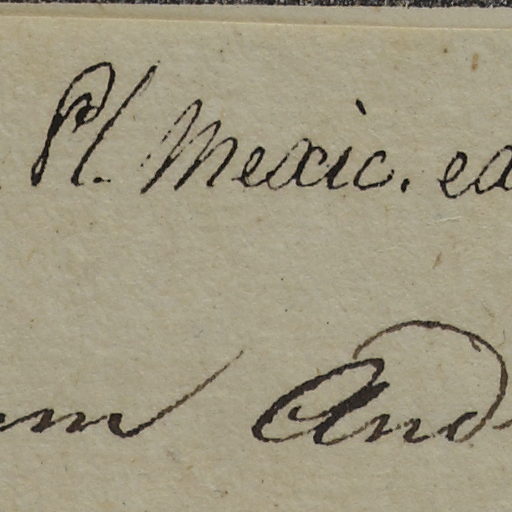 Pl. Mexic. ed
um And